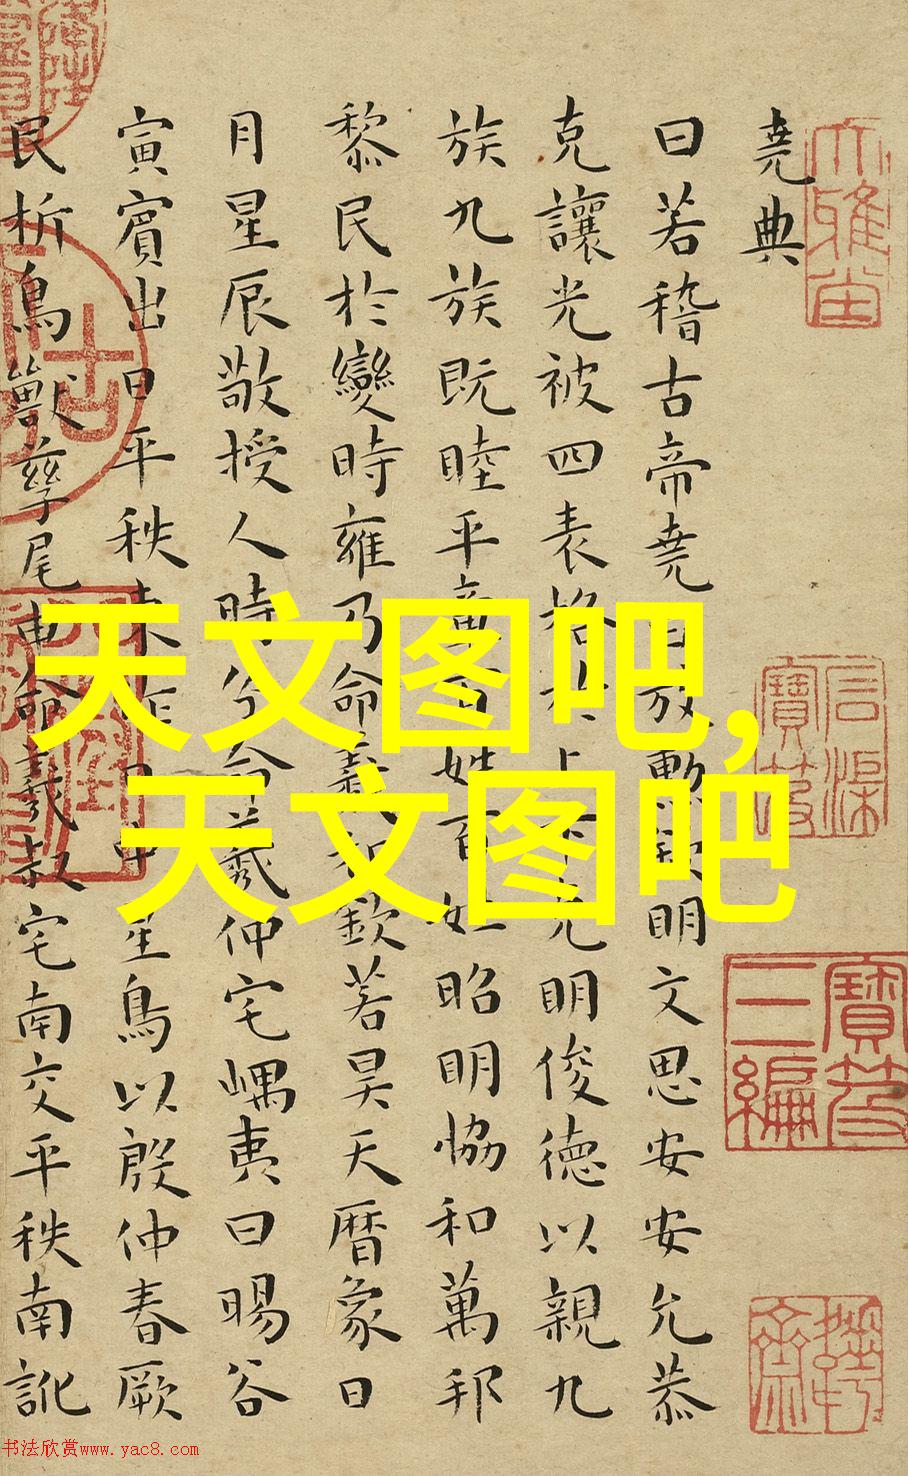 堯典
曰若稽古帝堯曰放勲欽明文思安安允恭
克讓光被四表格於上下克明俊德以親九
族九族既睦平章百姓百姓昭明恊和萬邦
黎民於變時雍乃命羲和欽若昊天曆象日
月星辰敬授人時分命羲仲宅嵎夷曰暘谷
寅賓出日平秩東作日中星鳥以殷仲春厥
民析鳥獸孳尾申命羲叔宅南交平秩南訛
天文图吧,
天文图吧
石渠
寶笈
寶笈
三編
书法欣赏www.yac8.com